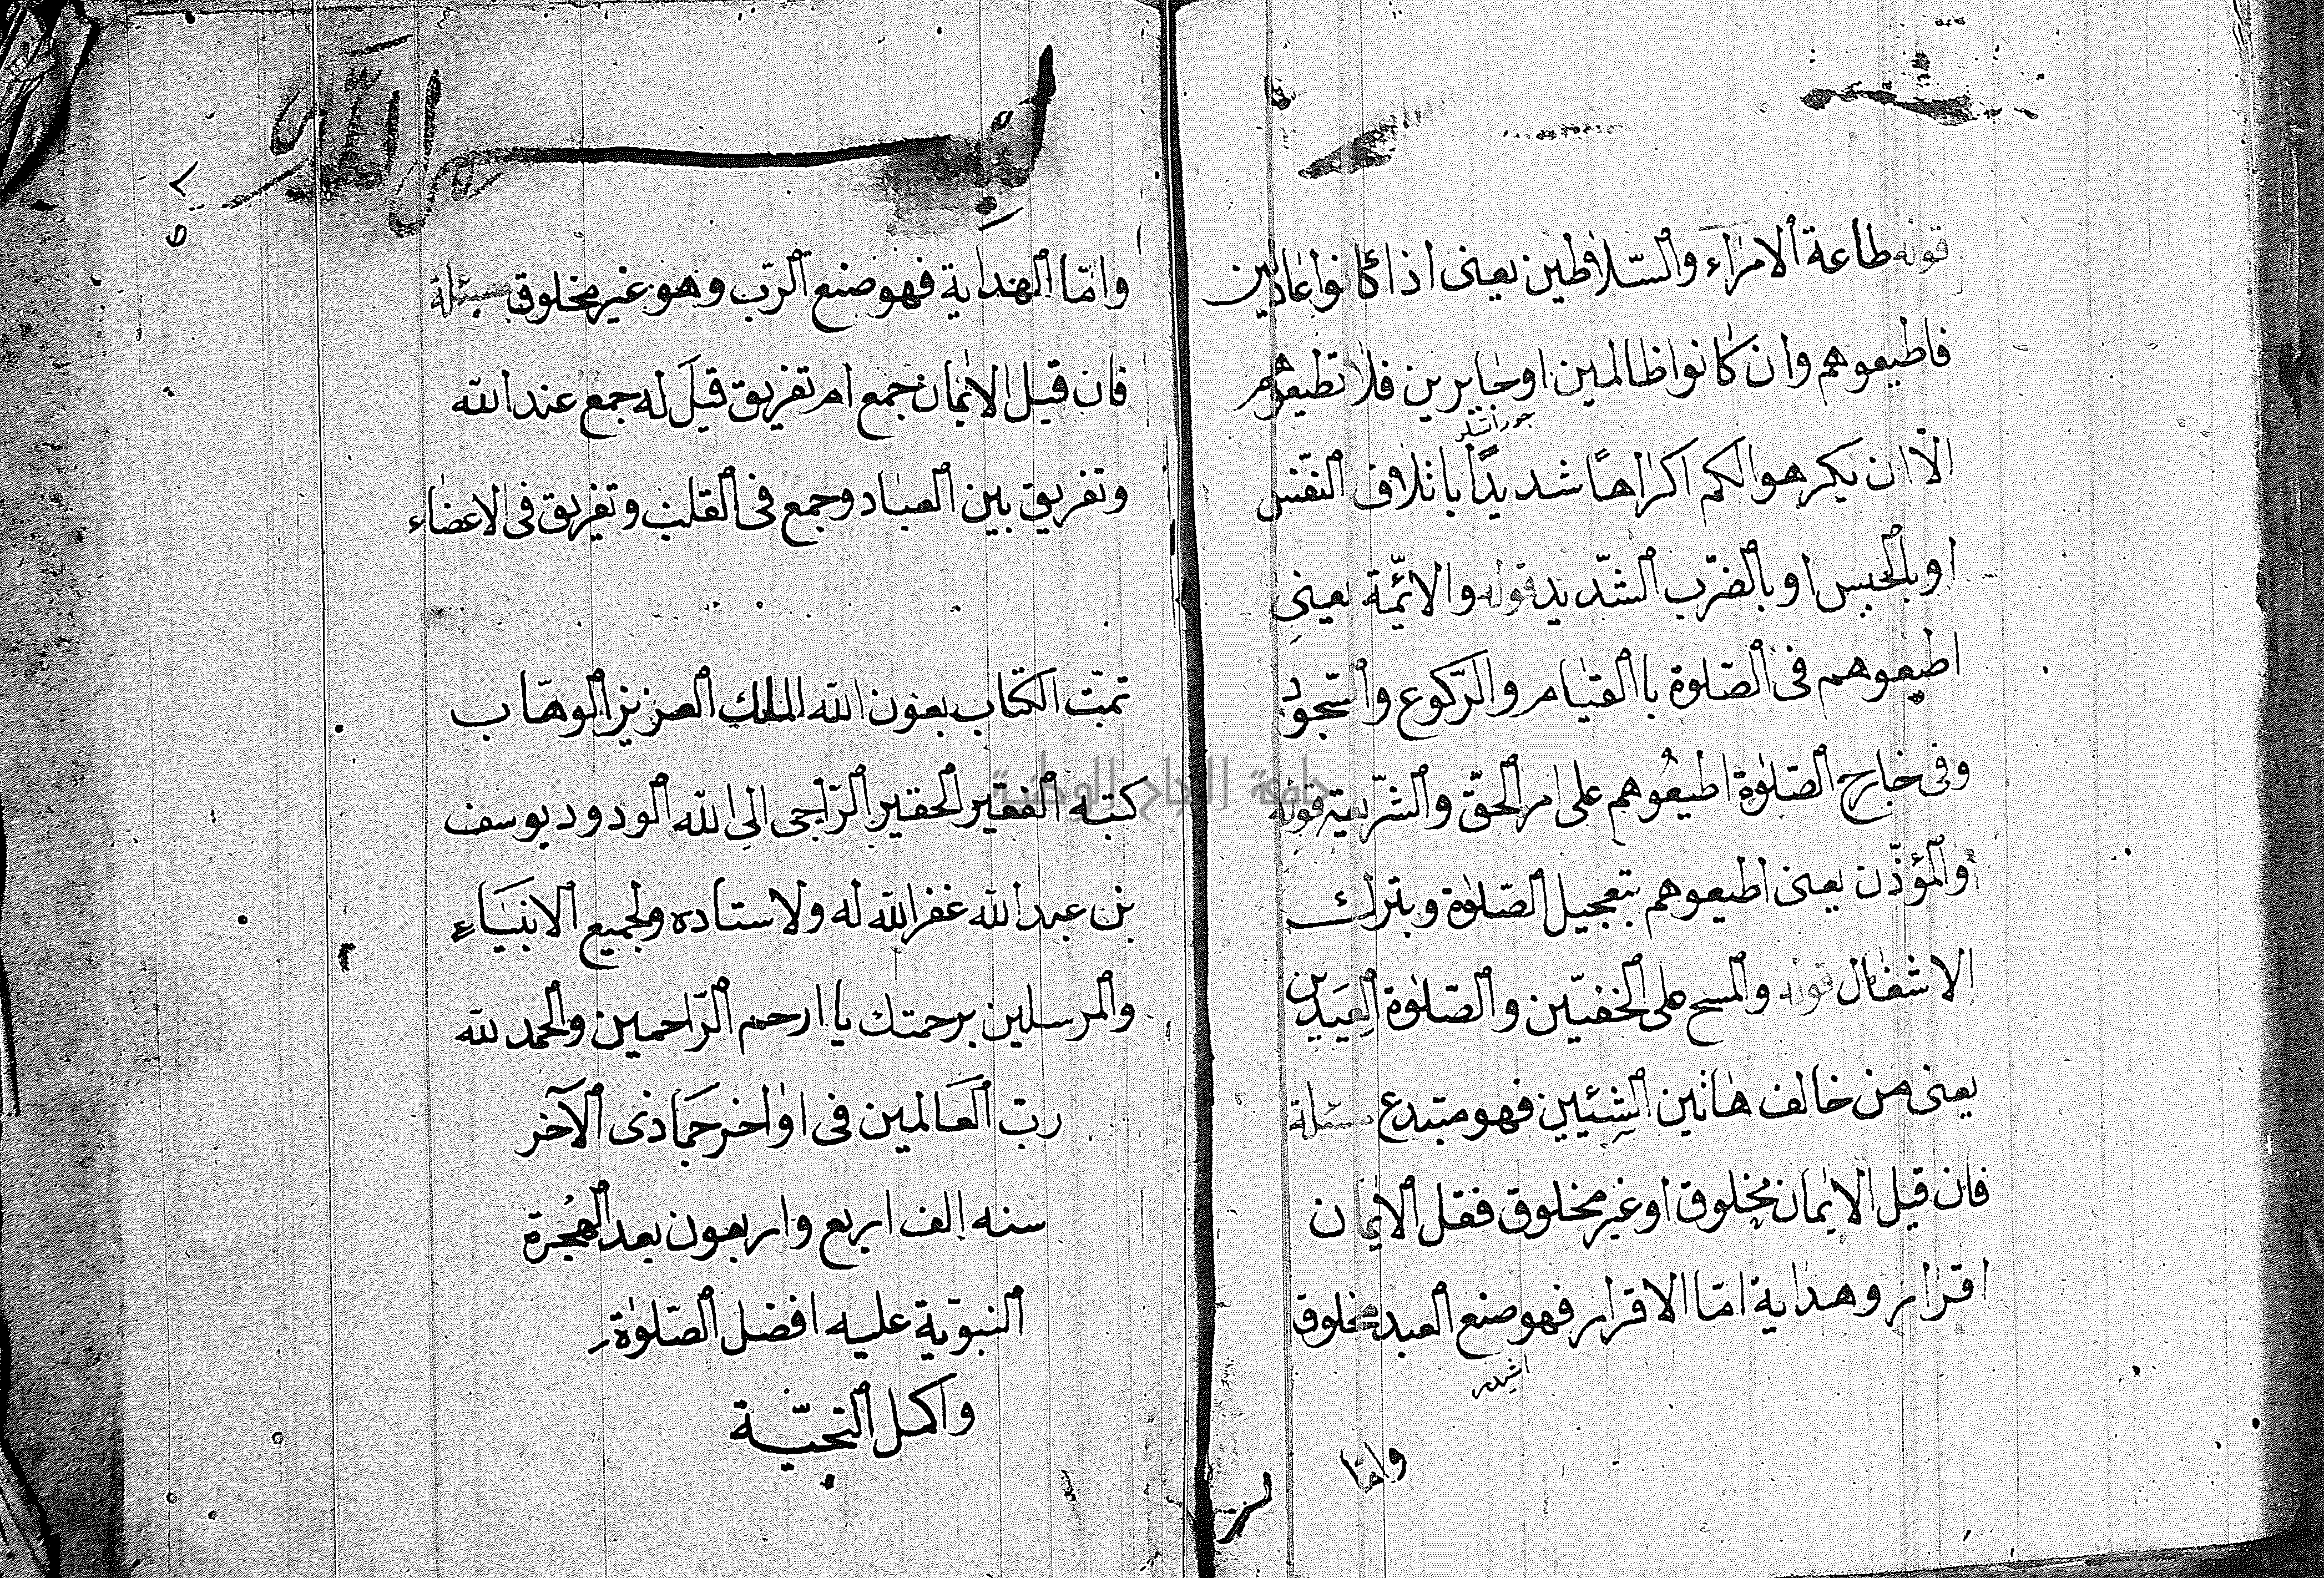 قوله طاعة الامراء والسّلاطين يعنى اذا كانوا عادلين
فاطيعوهم وان كانوا ظالمين او جابرين فلا تطيعوهم
الّا ان يكرهوالكم اكراهًا شديدًا باتلاف النّفس
او بالحبس او بالضّرب الشّديد قوله والائمّة يعنى
اطيعوهم فى الصّلوة باالقيام والرّكوع والسّجود
وفى خارج الصّلوة اطيعوهم على امر الحقّ والشّريعة قوله
والمؤذّن يعنى اطيعوهم بتعجيل الصّلوة وبترك
الاشغال قوله والمسح على الخفّين والصّلوة العيدين
يعنى من خالف هاتين الشيئين فهو مبتدع مسئلة
فان قيل الايمان مخلوق او غير مخلوق فقل الايمان
اقرار وهداية امّا الاقرار فهو صنع العبد مخلوق
وامّا
وامّا الهداية فهو صنع الرّب وهو غير مخلوق مسئلة
فان قيل الايمان جمع ام تفريق قيل له جمع عند الله
وتفريق بين العباد وجمع فى القلب وتفريق فى الاعضاء
تمّت الكتاب بعون الله الملك العزيز الوهّاب
كتبه الفقير الحقير الرّاجى الى الله الودود يوسف
بن عبد الله غفر الله له ولاستاده ولجميع الانبياء
والمرسلين برحمتك يا ارحم الرّاحمين والحمد لله
ربّ العالمين فى اواخر جماذى الآخر
سنه الف اربع واربعون بعد الهجرة
النبوّية عليه افضل الصّلوة
واكمل التحيّة
جامعة النجاح الوطنية